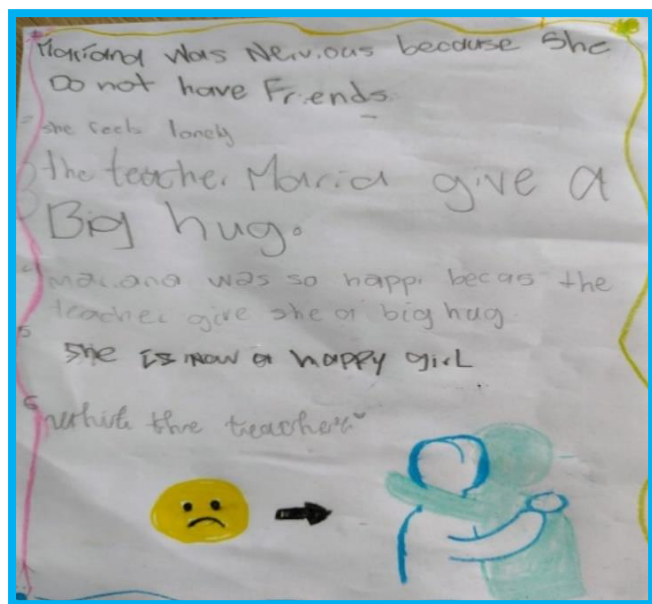 Mariana was Nervious because She
Do not have Friends.
she feels lonely
the teacher Maria give a
Big hug.
4 mariana was so happi becas the
teacher give she a big hug
5
She is now a happy girl
6 the teacher